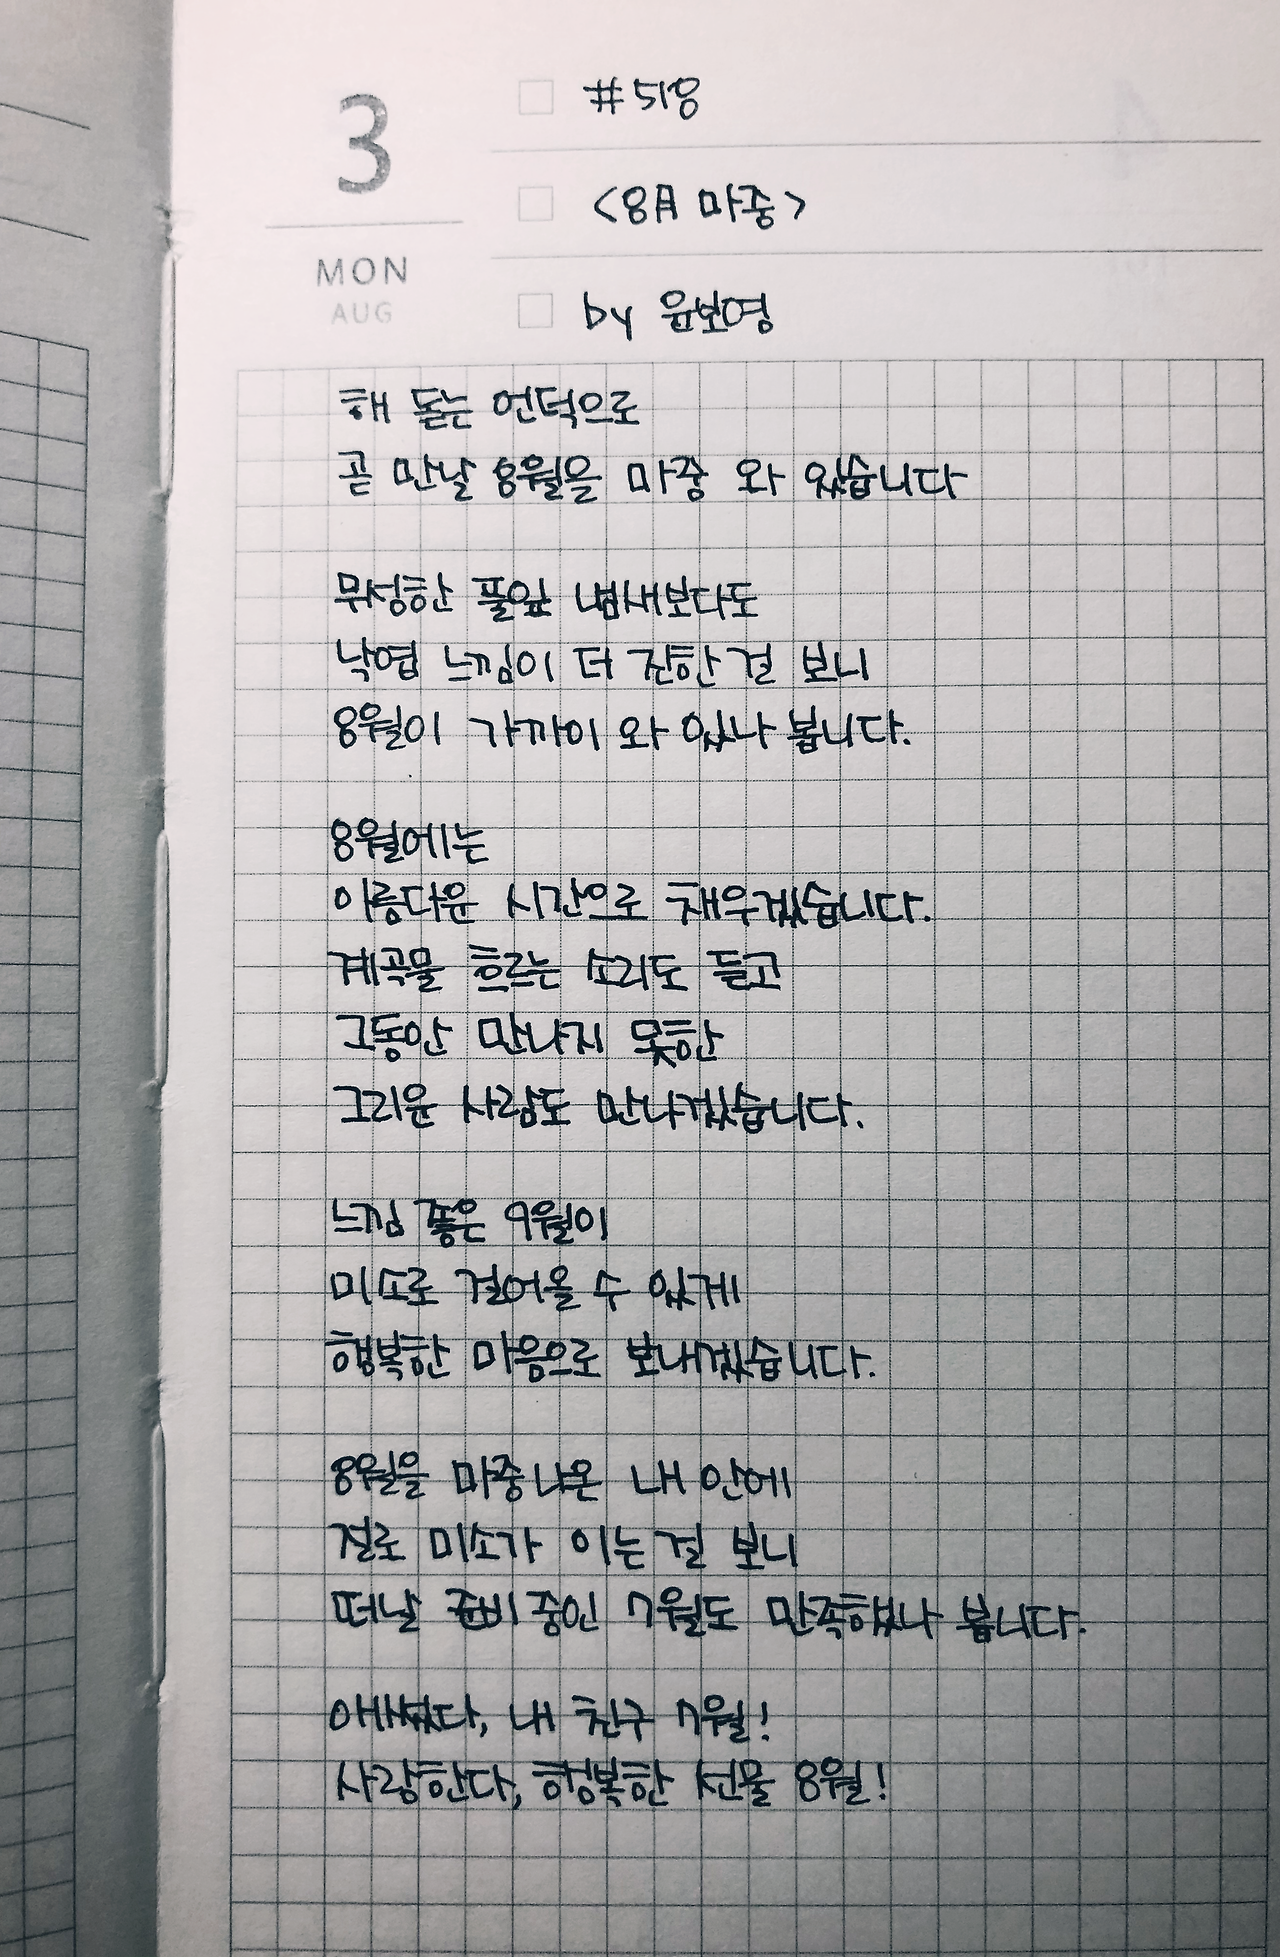 3
MON
AUG
#518
<8月 마중>
by 윤보영
해 돋는 언덕으로
곧 만날 8월을 마중 와 있습니다
무성한 풀잎 냄새보다도
낙엽 느낌이 더 진한 걸 보니
8월이 가까이 와 있나 봅니다.
8월에는
아름다운 시간으로 채우겠습니다.
계곡물 흐르는 소리도 듣고
그동안 만나지 못한
그리운 사람도 만나겠습니다.
느낌 좋은 9월이
미소로 걸어올 수 있게
행복한 마음으로 보내겠습니다.
8월을 마중나온 내 안에
절로 미소가 이는 걸 보니
떠날 준비 중인 7월도 만족했나 봅니다.
애썼다, 내 친구 7월!
사랑한다, 행복한 선물 8월!